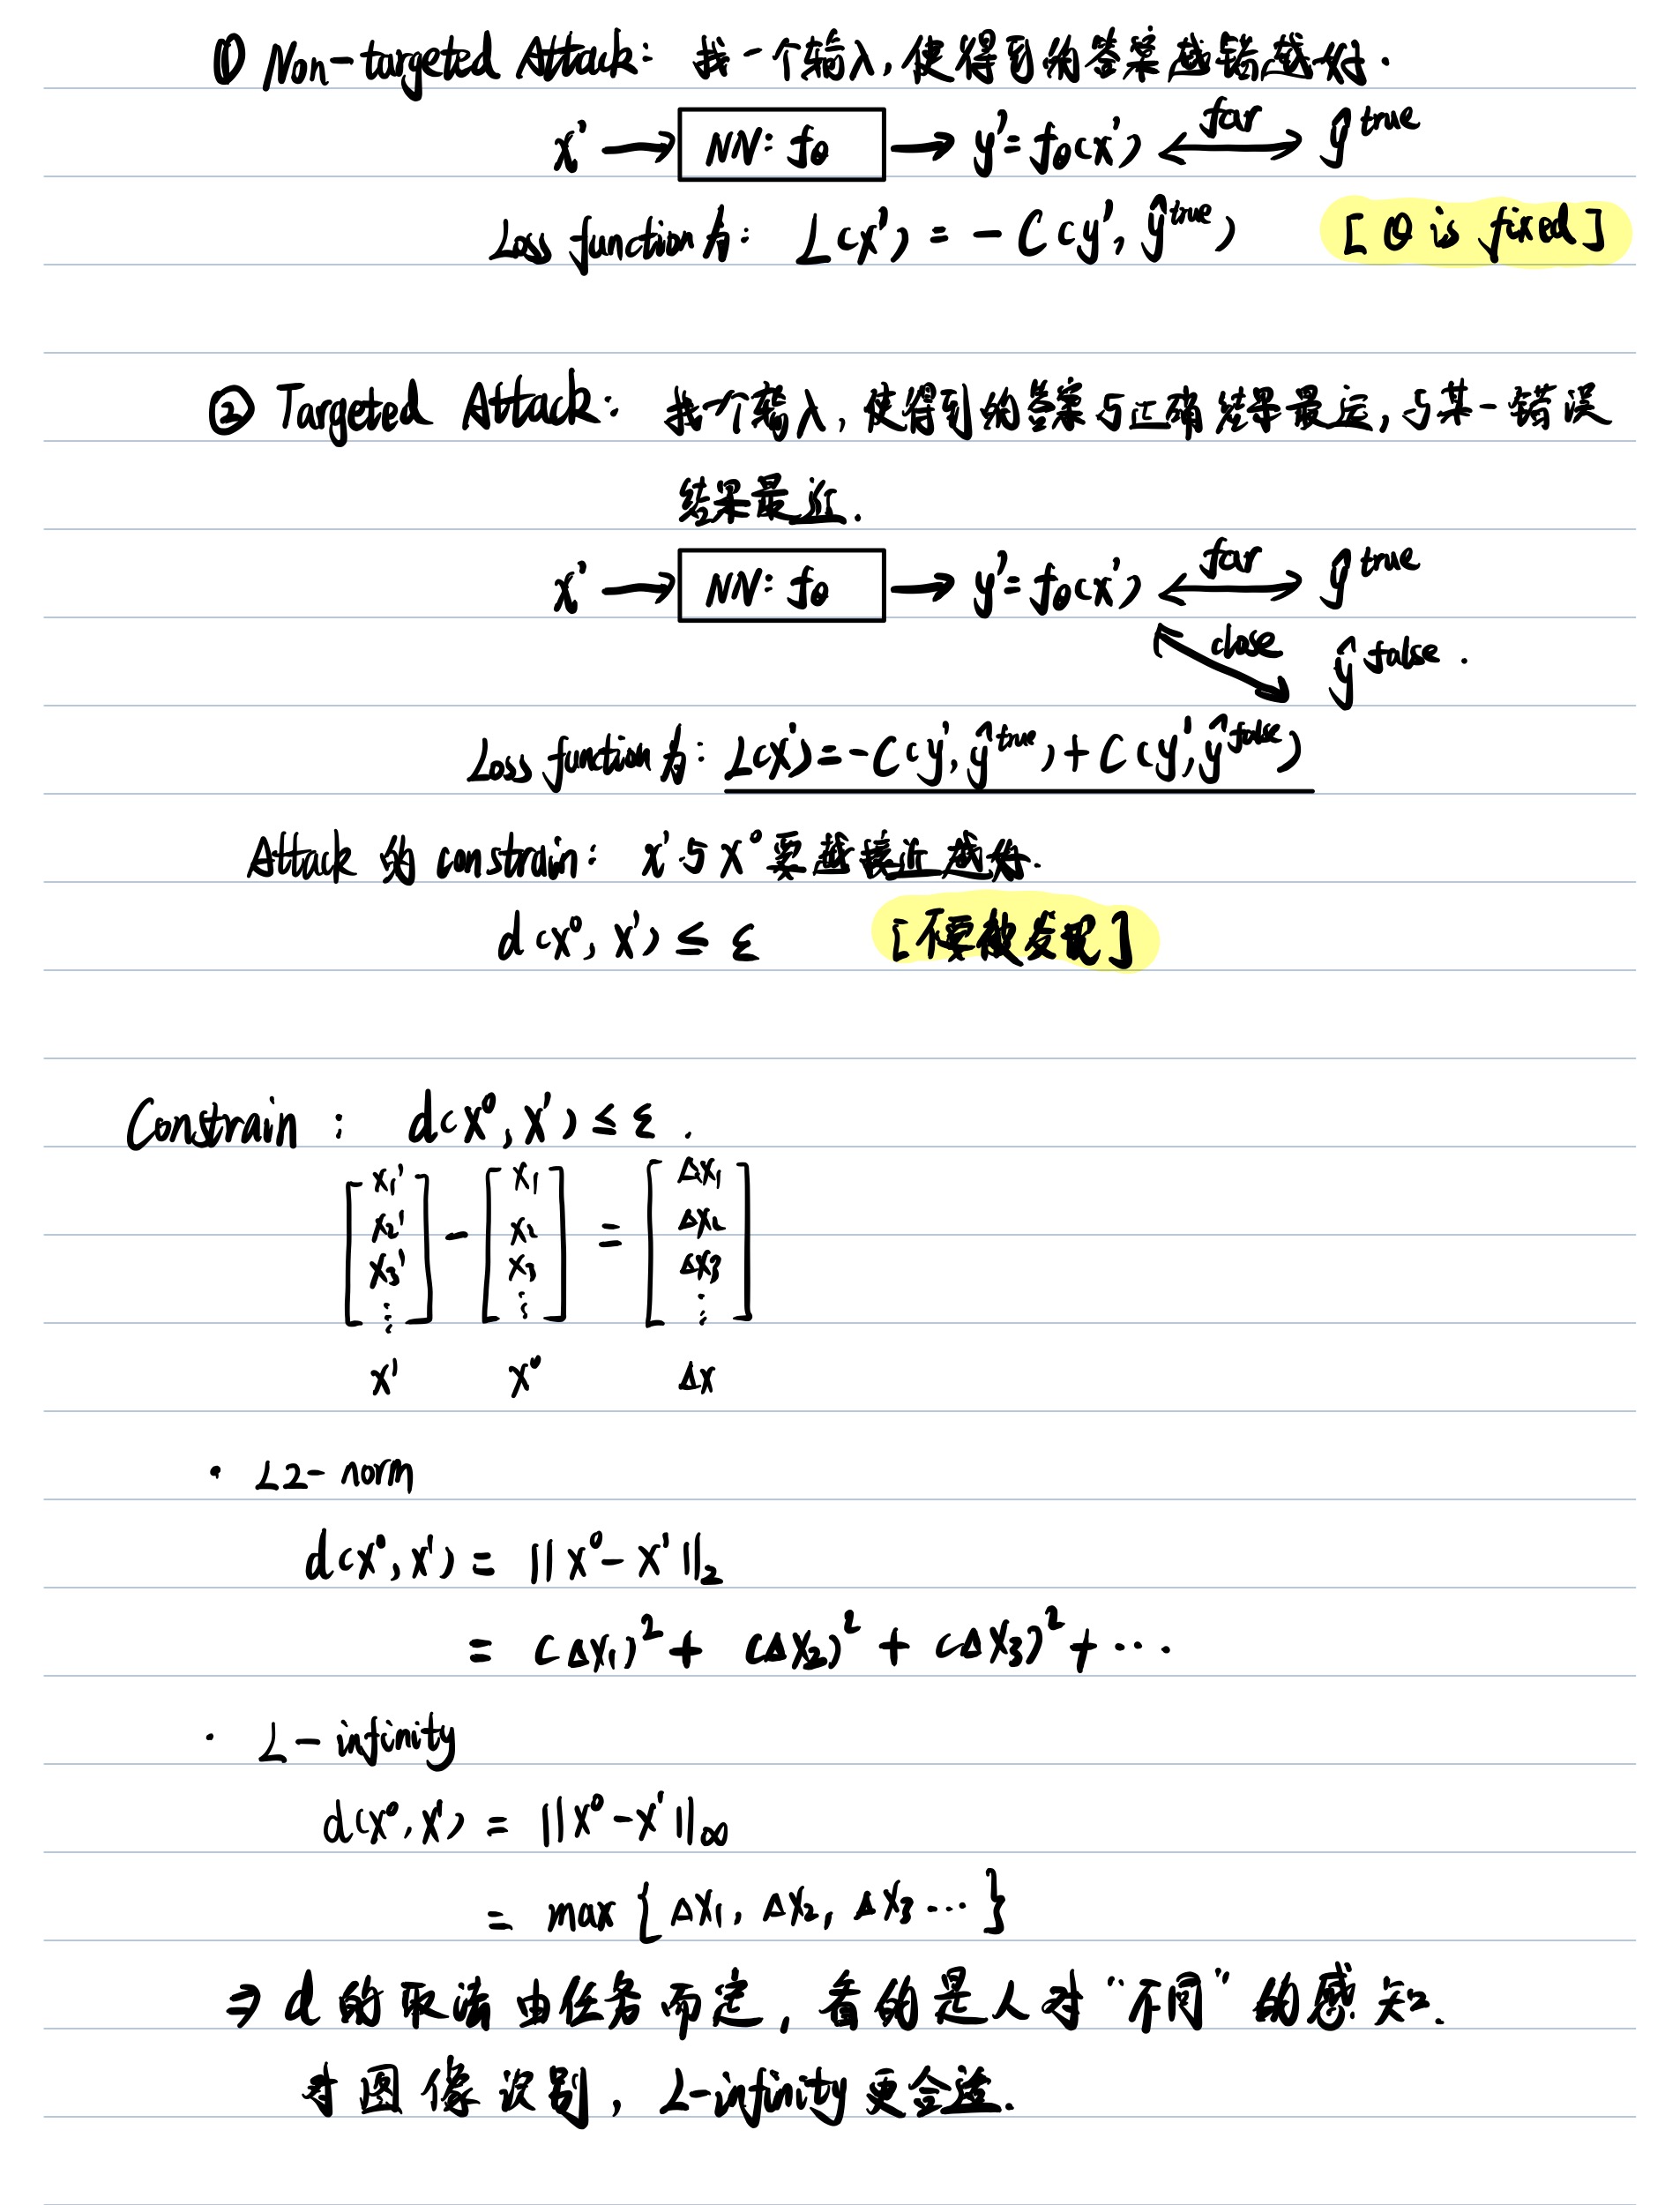 ① Non-targeted Attack: 找一个输入,使得到的答案越错越好.
x' → NN: fθ → y'=fθ(x') far ŷ^true
Loss function为: L(x') = -C(y', ŷ^true) [θ is fixed]
② Targeted Attack: 找一个输入,使得到的答案与正确结果最远,与某一错误
结果最近.
x' → NN: fθ → y'=fθ(x') far ŷ^true
close ŷ^false.
Loss function为: L(x')=-C(y', ŷ^true)+C(y', ŷ^false)
Attack 的 constrain: x'与x⁰要越接近越好.
d(x⁰, x') ≤ ε [不要被发现]
Constrain: d(x⁰, x') ≤ ε.
[x₁' x₂' x₃' ⋮] - [x₁ x₂ x₃ ⋮] = [Δx₁ Δx₂ Δx₃ ⋮]
x' x⁰ Δx
· L2-norm
d(x⁰, x') = ||x⁰-x'||₂
= (Δx₁)²+ (Δx₂)² + (Δx₃)²+ ⋯
· L-infinity
d(x⁰, x') = ||x⁰-x'||∞
= max{Δx₁, Δx₂, Δx₃ ⋯}
⇒ d的取法由任务而定,看的是人对"不同"的感知.
对图像识别, L-infinity更合适.